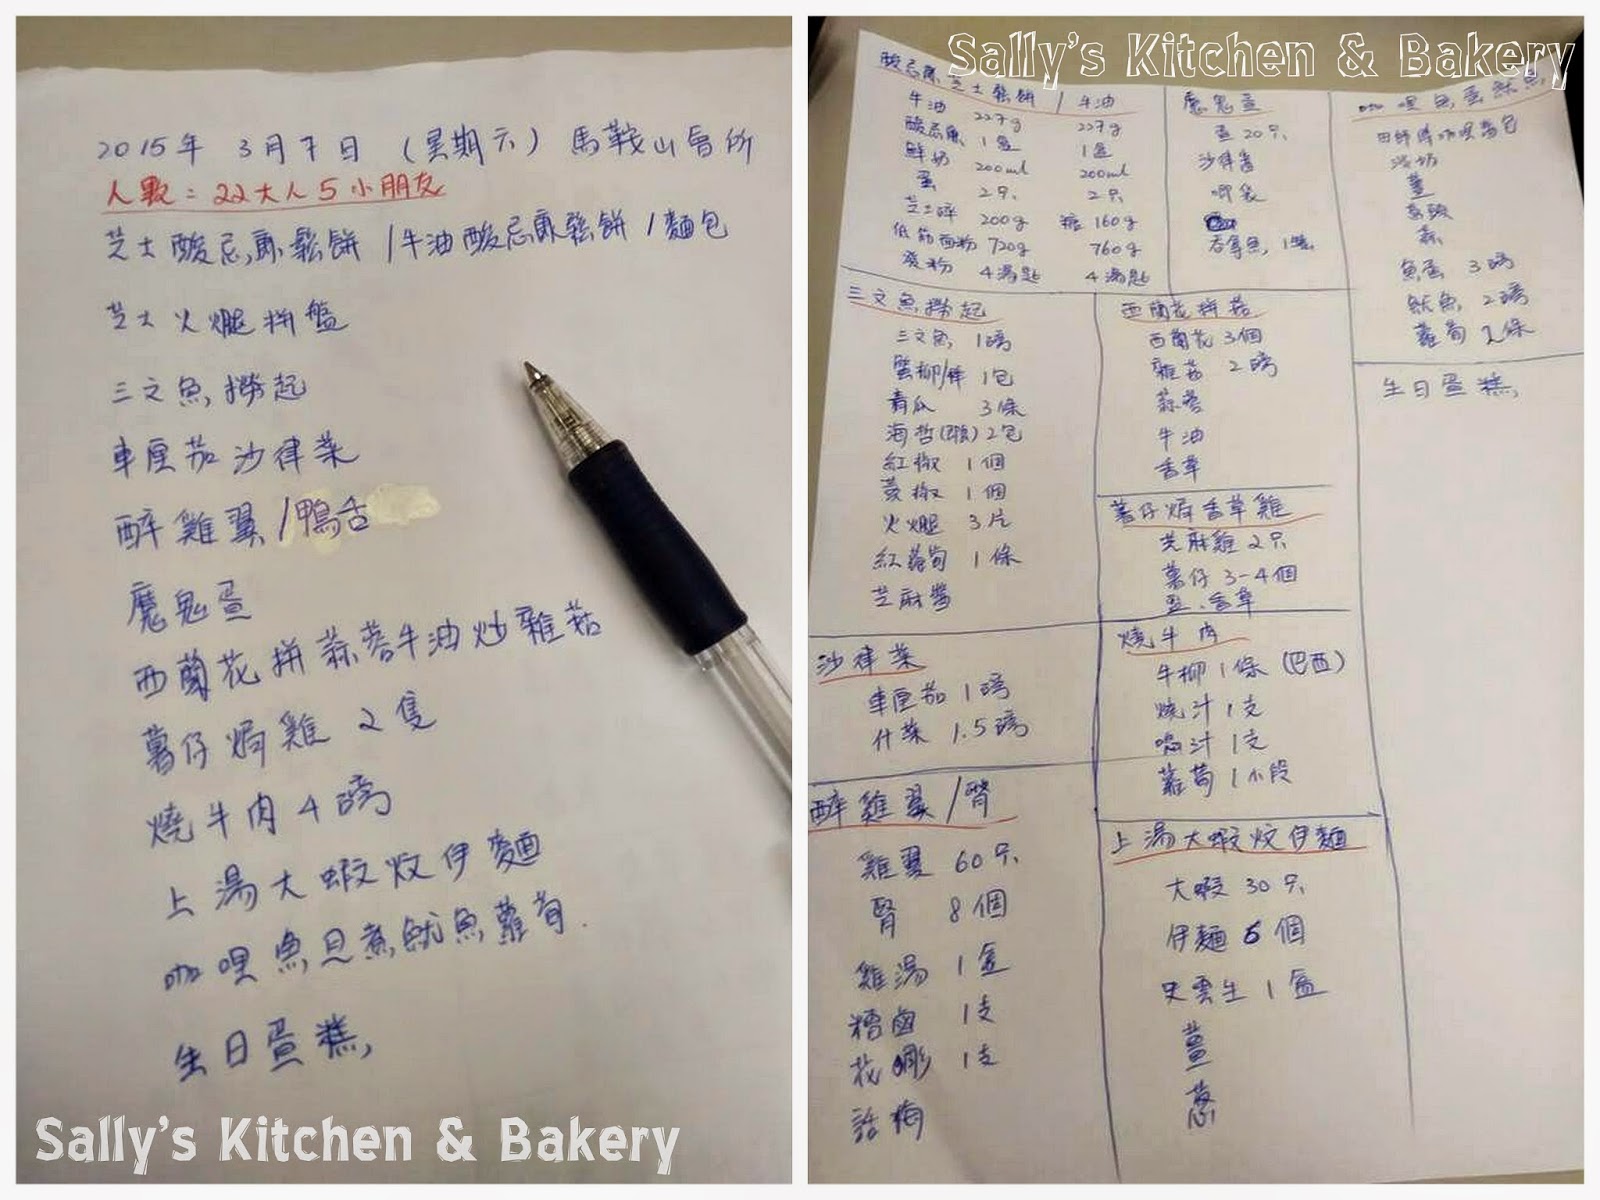 2015年 3月7日 (星期六) 馬鞍山會所
人數：22大人5小朋友
芝士酸忌廉鬆餅 / 牛油酸忌廉鬆餅 / 麵包
芝士火腿拼盤
三文魚撈起
車厘茄沙律菜
醉雞翼/鴨舌
魔鬼蛋
西蘭花拼蒜蓉牛油炒雜菇
薯仔焗雞 2隻
燒牛肉 4磅
上湯大蝦炆伊麵
咖哩魚旦煮魷魚蘿蔔.
生日蛋糕
Sally's Kitchen & Bakery
Sally's Kitchen & Bakery
酸忌廉芝士鬆餅 / 牛油
牛油 227g 227g
酸忌廉 1盒 1盒
鮮奶 200ml 200ml
蛋 2只 2只
芝士碎 200g 糖 160g
低筋面粉 720g 760g
發粉 4湯匙 4湯匙
魔鬼蛋
蛋 20只
沙律醬
唧袋
吞拿魚 1罐
咖哩魚蛋魷魚
薑
蒜
魚蛋 3磅
魷魚 2磅
蘿蔔 2條
生日蛋糕
三文魚撈起
三文魚 1磅
蟹柳/棒 1包
青瓜 3條
海哲(頭) 2包
紅椒 1個
黃椒 1個
火腿 3片
紅蘿蔔 1條
芝麻醬
西蘭花拼菇
西蘭花 3個
雜菇 2磅
蒜蓉
牛油
香草
薯仔焗香草雞
芝麻雞 2只
薯仔 3-4個
香草
沙律菜
車厘茄 1磅
什菜 1.5磅
燒牛肉
牛柳 1條 (巴西)
燒汁 1支
喼汁 1支
蘿蔔 1小段
醉雞翼/腎
雞翼 60只
腎 8個
雞湯 1盒
糟鹵 1支
花彫 1支
話梅
上湯大蝦炆伊麵
大蝦 30只
伊麵 6個
史雲生 1盒
薑
蔥